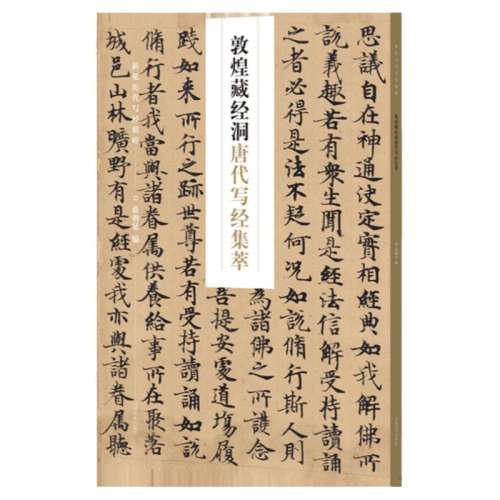 思議自在神通決定實相經典如我解佛所
說義趣若有衆生聞是經法信解受持讀誦
之者必得是法不起何況如說脩行斯人則
為諸佛之所護念
菩提安處道塲履
敦煌藏经洞唐代写经集萃
践如来所行之跡世尊若有受持讀誦如說
脩行者我當與諸眷属供養給事所在聚落
城邑山林曠野有是經處我亦與諸眷属聽